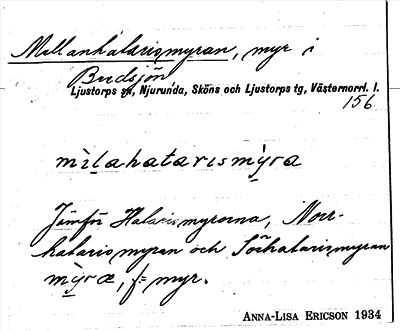 Mellanhatarismyran, myr i
Budsjön
Ljustorps sn, Njurunda, Sköns och Ljustorps tg, Västernorrl. l.
156
mìlahatarısmỳra
Jämför Hatarismyrorna, Norr-
hatarismyran och Sörhatarismyran
mỳra, f= myr.
ANNA-LISA ERICSON 1934